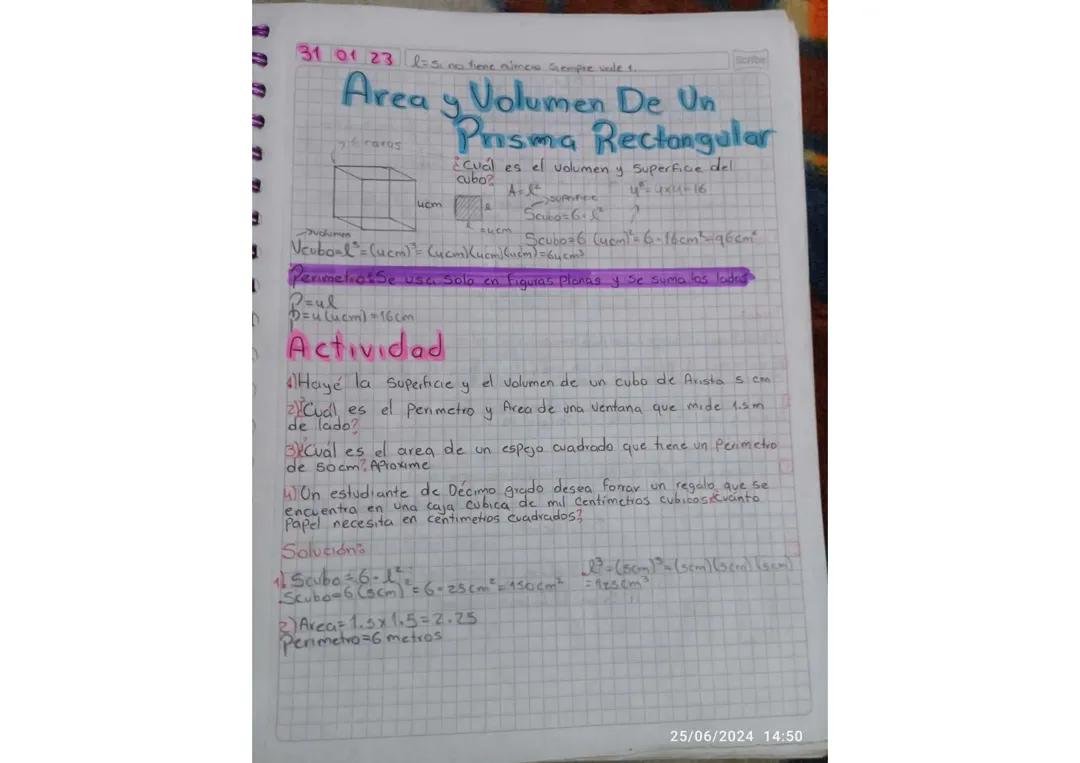 31 01 23 l=si no tiene número siempre vale 1.
Scribe
Area y Volumen De Un
Prisma Rectangular
6 caras
¿Cuál es el volumen y superficie del
cubo?
A=l²
4²=4x4=16
4cm
l
superficie
Scubo=6·l²
l=4cm
Scubo=6(4cm)²=6·16cm²=96cm²
volumen
Vcubo=l³=(4cm)³=(4cm)(4cm)(4cm)=64cm³
Perimetro: Se usa solo en figuras planas y se suma los lados
P=4l
P=4(4cm)=16cm
Actividad
1) Hayé la superficie y el volumen de un cubo de Arista 5 cm
2) ¿Cuál es el perimetro y Area de una ventana que mide 1.5m
de lado?
3) ¿Cuál es el area de un espejo cuadrado que tiene un Perimetro
de 50cm? Aproxime
4) Un estudiante de Décimo grado desea forrar un regalo que se
encuentra en una caja cubica de mil centimetros cubicos ¿cuánto
Papel necesita en centimetros cuadrados?
Solución:
1) Scubo=6·l²
Scubo=6(5cm)²=6·25cm²=150cm²
l³=(5cm)³=(5cm)(5cm)(5cm)
=125cm³
2) Area=1.5x1.5=2.25
Perimetro=6 metros
25/06/2024 14:50